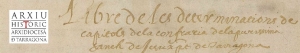 ARXIU
HISTÒRIC
ARXIDIÒCESI
DE TARRAGONA
Llibre de les determinations de
capitols de la confraria de la purissima
sanch de Jesuxpt de Tarragona